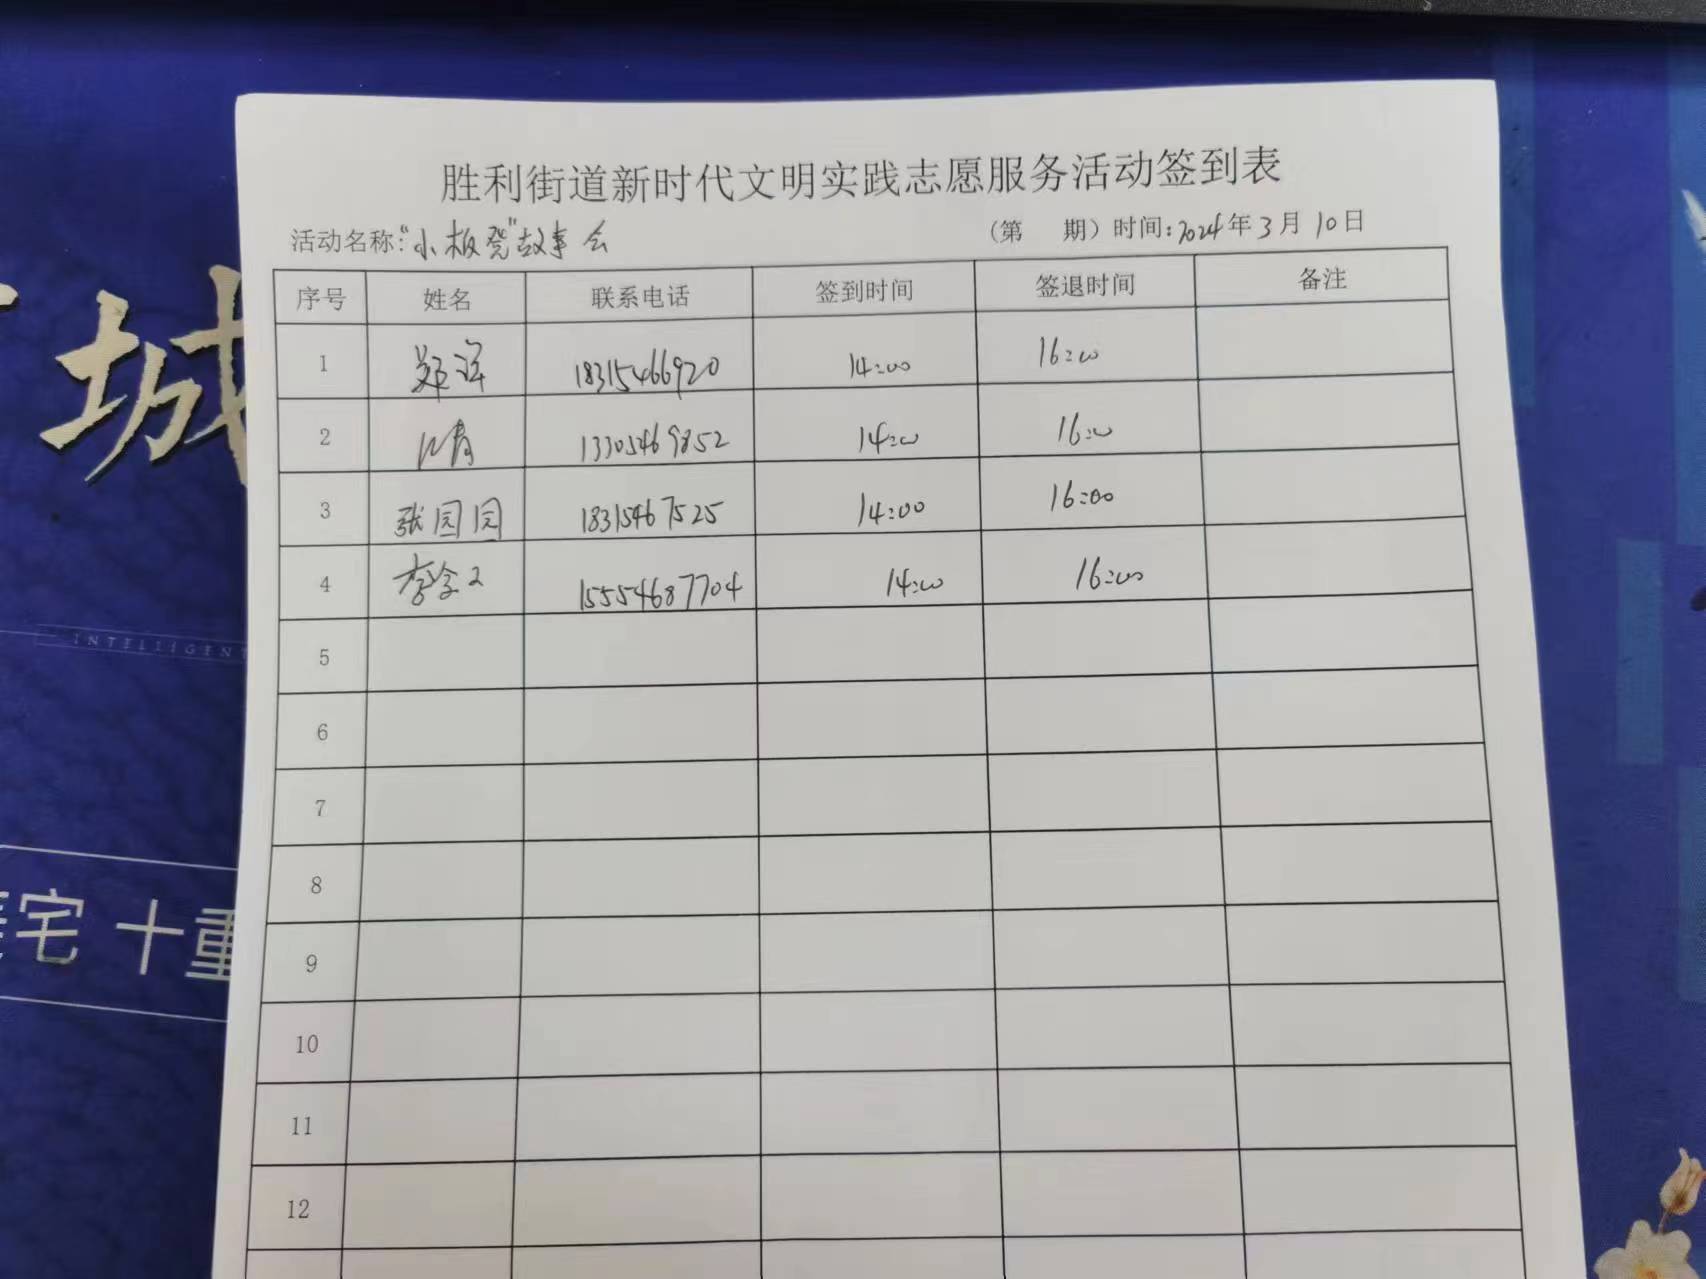 胜利街道新时代文明实践志愿服务活动签到表
活动名称:“小板凳”故事会 (第 期) 时间:2024年3月10日
序号 姓名 联系电话 签到时间 签退时间 备注
1 郑洋 18315466920 14:00 16:00
2 13305469852 14:00 16:00
3 张园园 18315467525 14:00 16:00
4 李 15554687704 14:00 16:00
5
6
7
8
9
10
11
12
城
INTELLIGENT
宅 十重